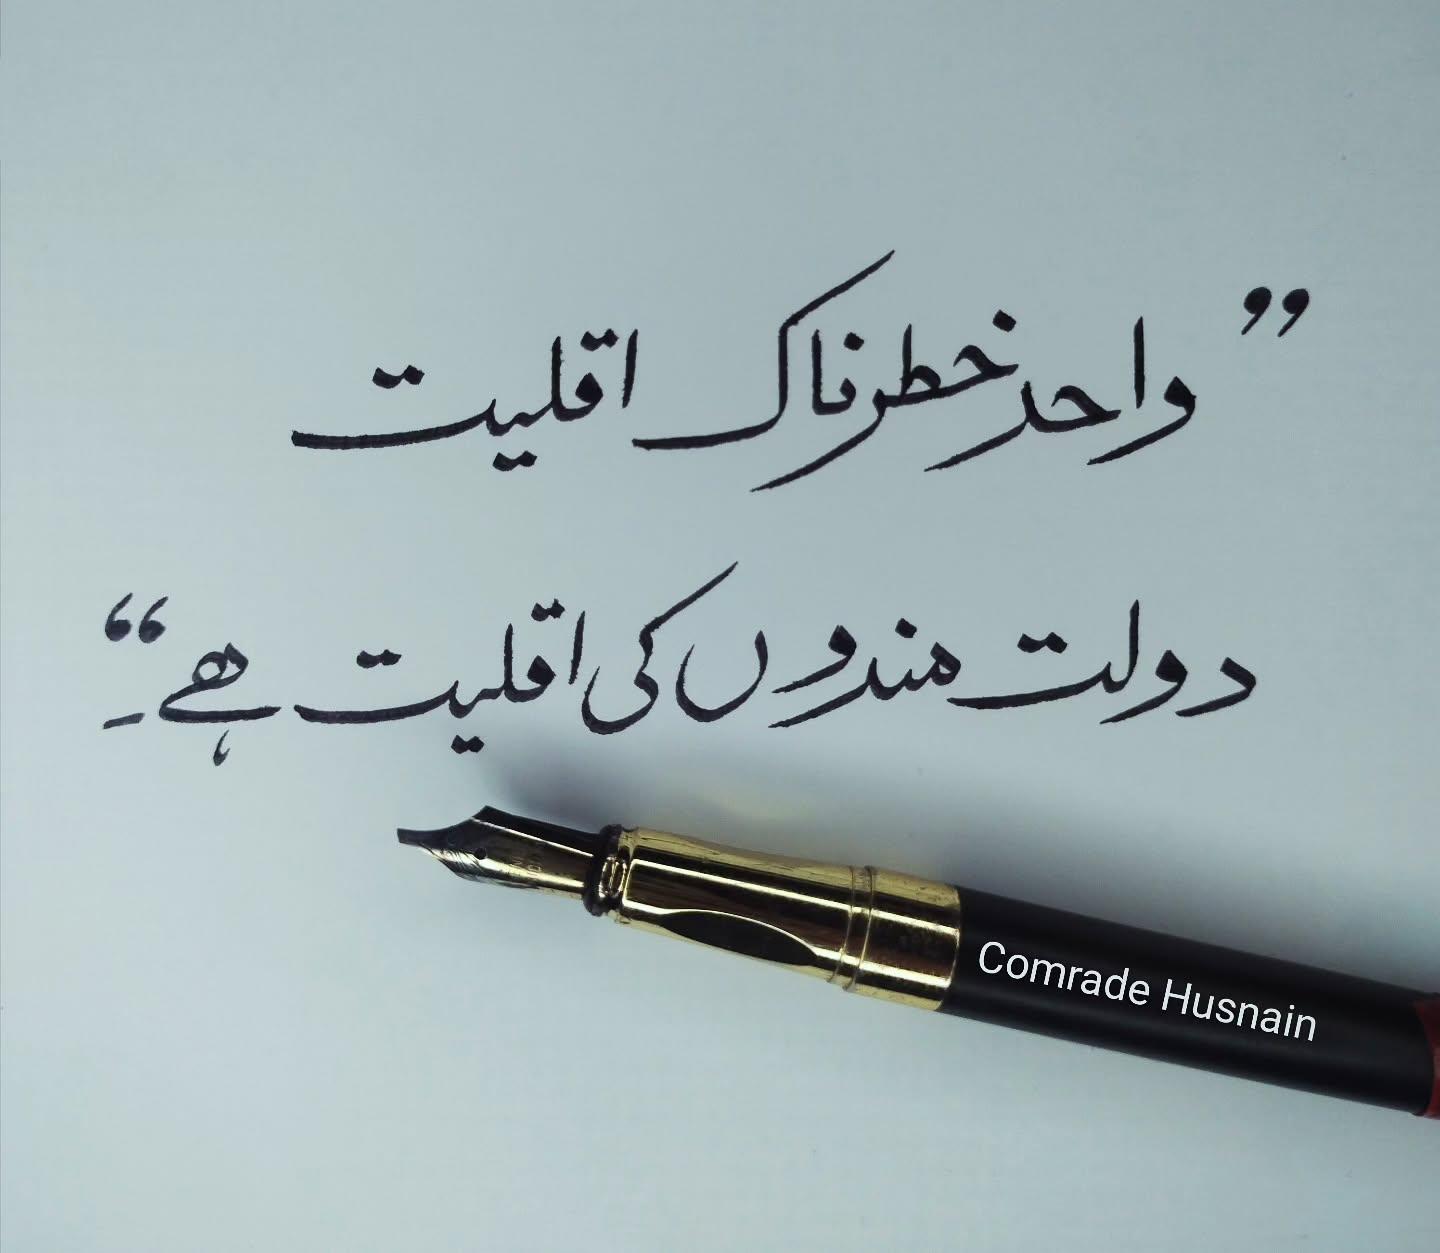 ”واحد خطرناک اقلیت
دولت مندوں کی اقلیت ھے“۔
Comrade Husnain